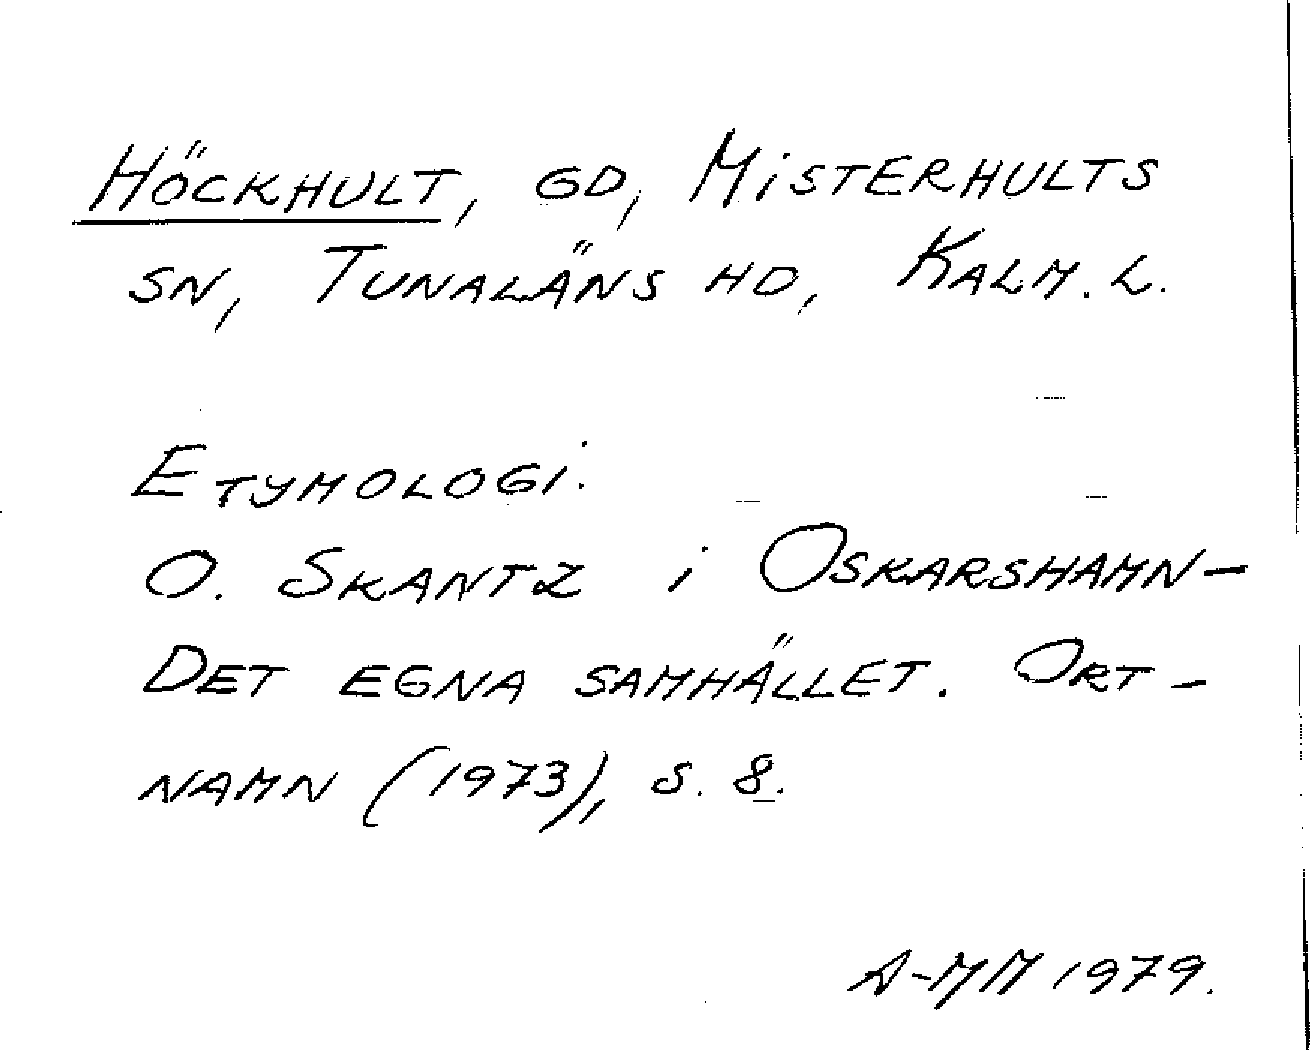 HÖCKHULT, GD, MISTERHULTS
SN, TUNALÄNS HD, KALM. L.
ETYMOLOGI:
O. SKANTZ i OSKARSHAMN-
DET EGNA SAMHÄLLET. ORT-
NAMN (1973), S. 8.
A-MM 1979.